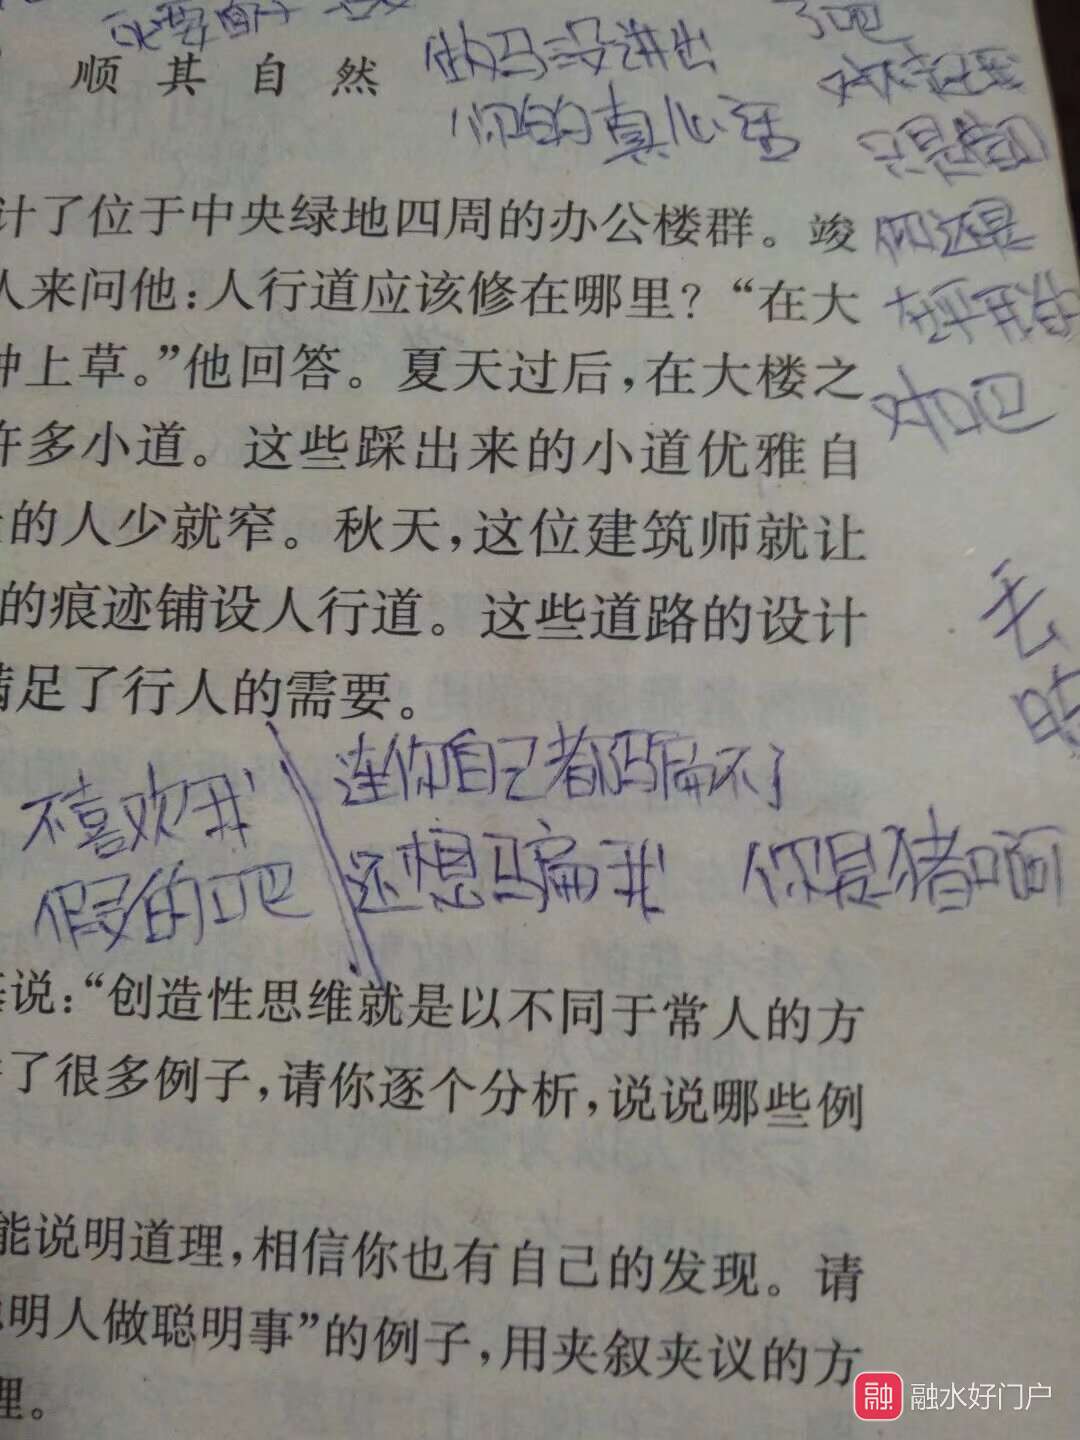 顺其自然
做马没讲出
你的真心话
了吧
对不起我
只是
你还是
在乎我的
对吧
计了位于中央绿地四周的办公楼群。竣
人来问他：人行道应该修在哪里？“在大
种上草。”他回答。夏天过后，在大楼之
许多小道。这些踩出来的小道优雅自
的人少就窄。秋天，这位建筑师就让
的痕迹铺设人行道。这些道路的设计
满足了行人的需要。
不喜欢我
假的吧
连你自己都骗不了
还想骗我 你是猪啊
说：“创造性思维就是以不同于常人的方
了很多例子，请你逐个分析，说说哪些例
能说明道理，相信你也有自己的发现。请
聪明人做聪明事”的例子，用夹叙夹议的方
理。
融 融水好门户